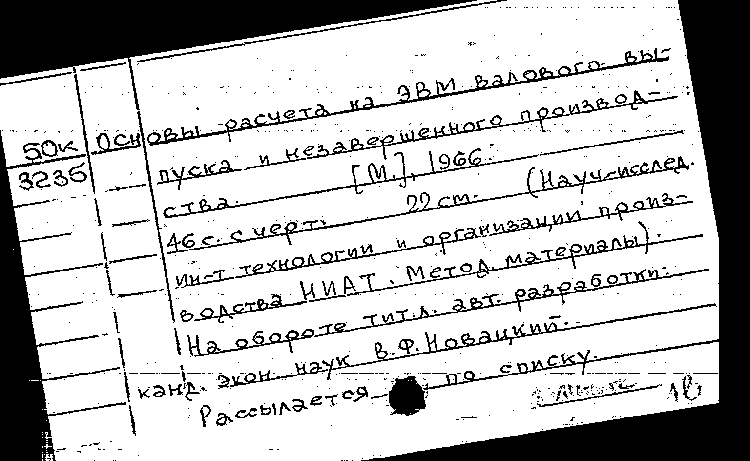 50к Основы расчета на ЭВМ валового вы-
3235 пуска и незавершенного производ-
ства. [М.], 1966.
46 с. с черт. 22 см. (Науч.-исслед.
ин-т технологии и организации произ-
водства НИАТ. Метод. материалы).
На обороте тит. л. авт. разработки:
канд. экон. наук В.Ф. Новацкий.
Рассылается по списку.